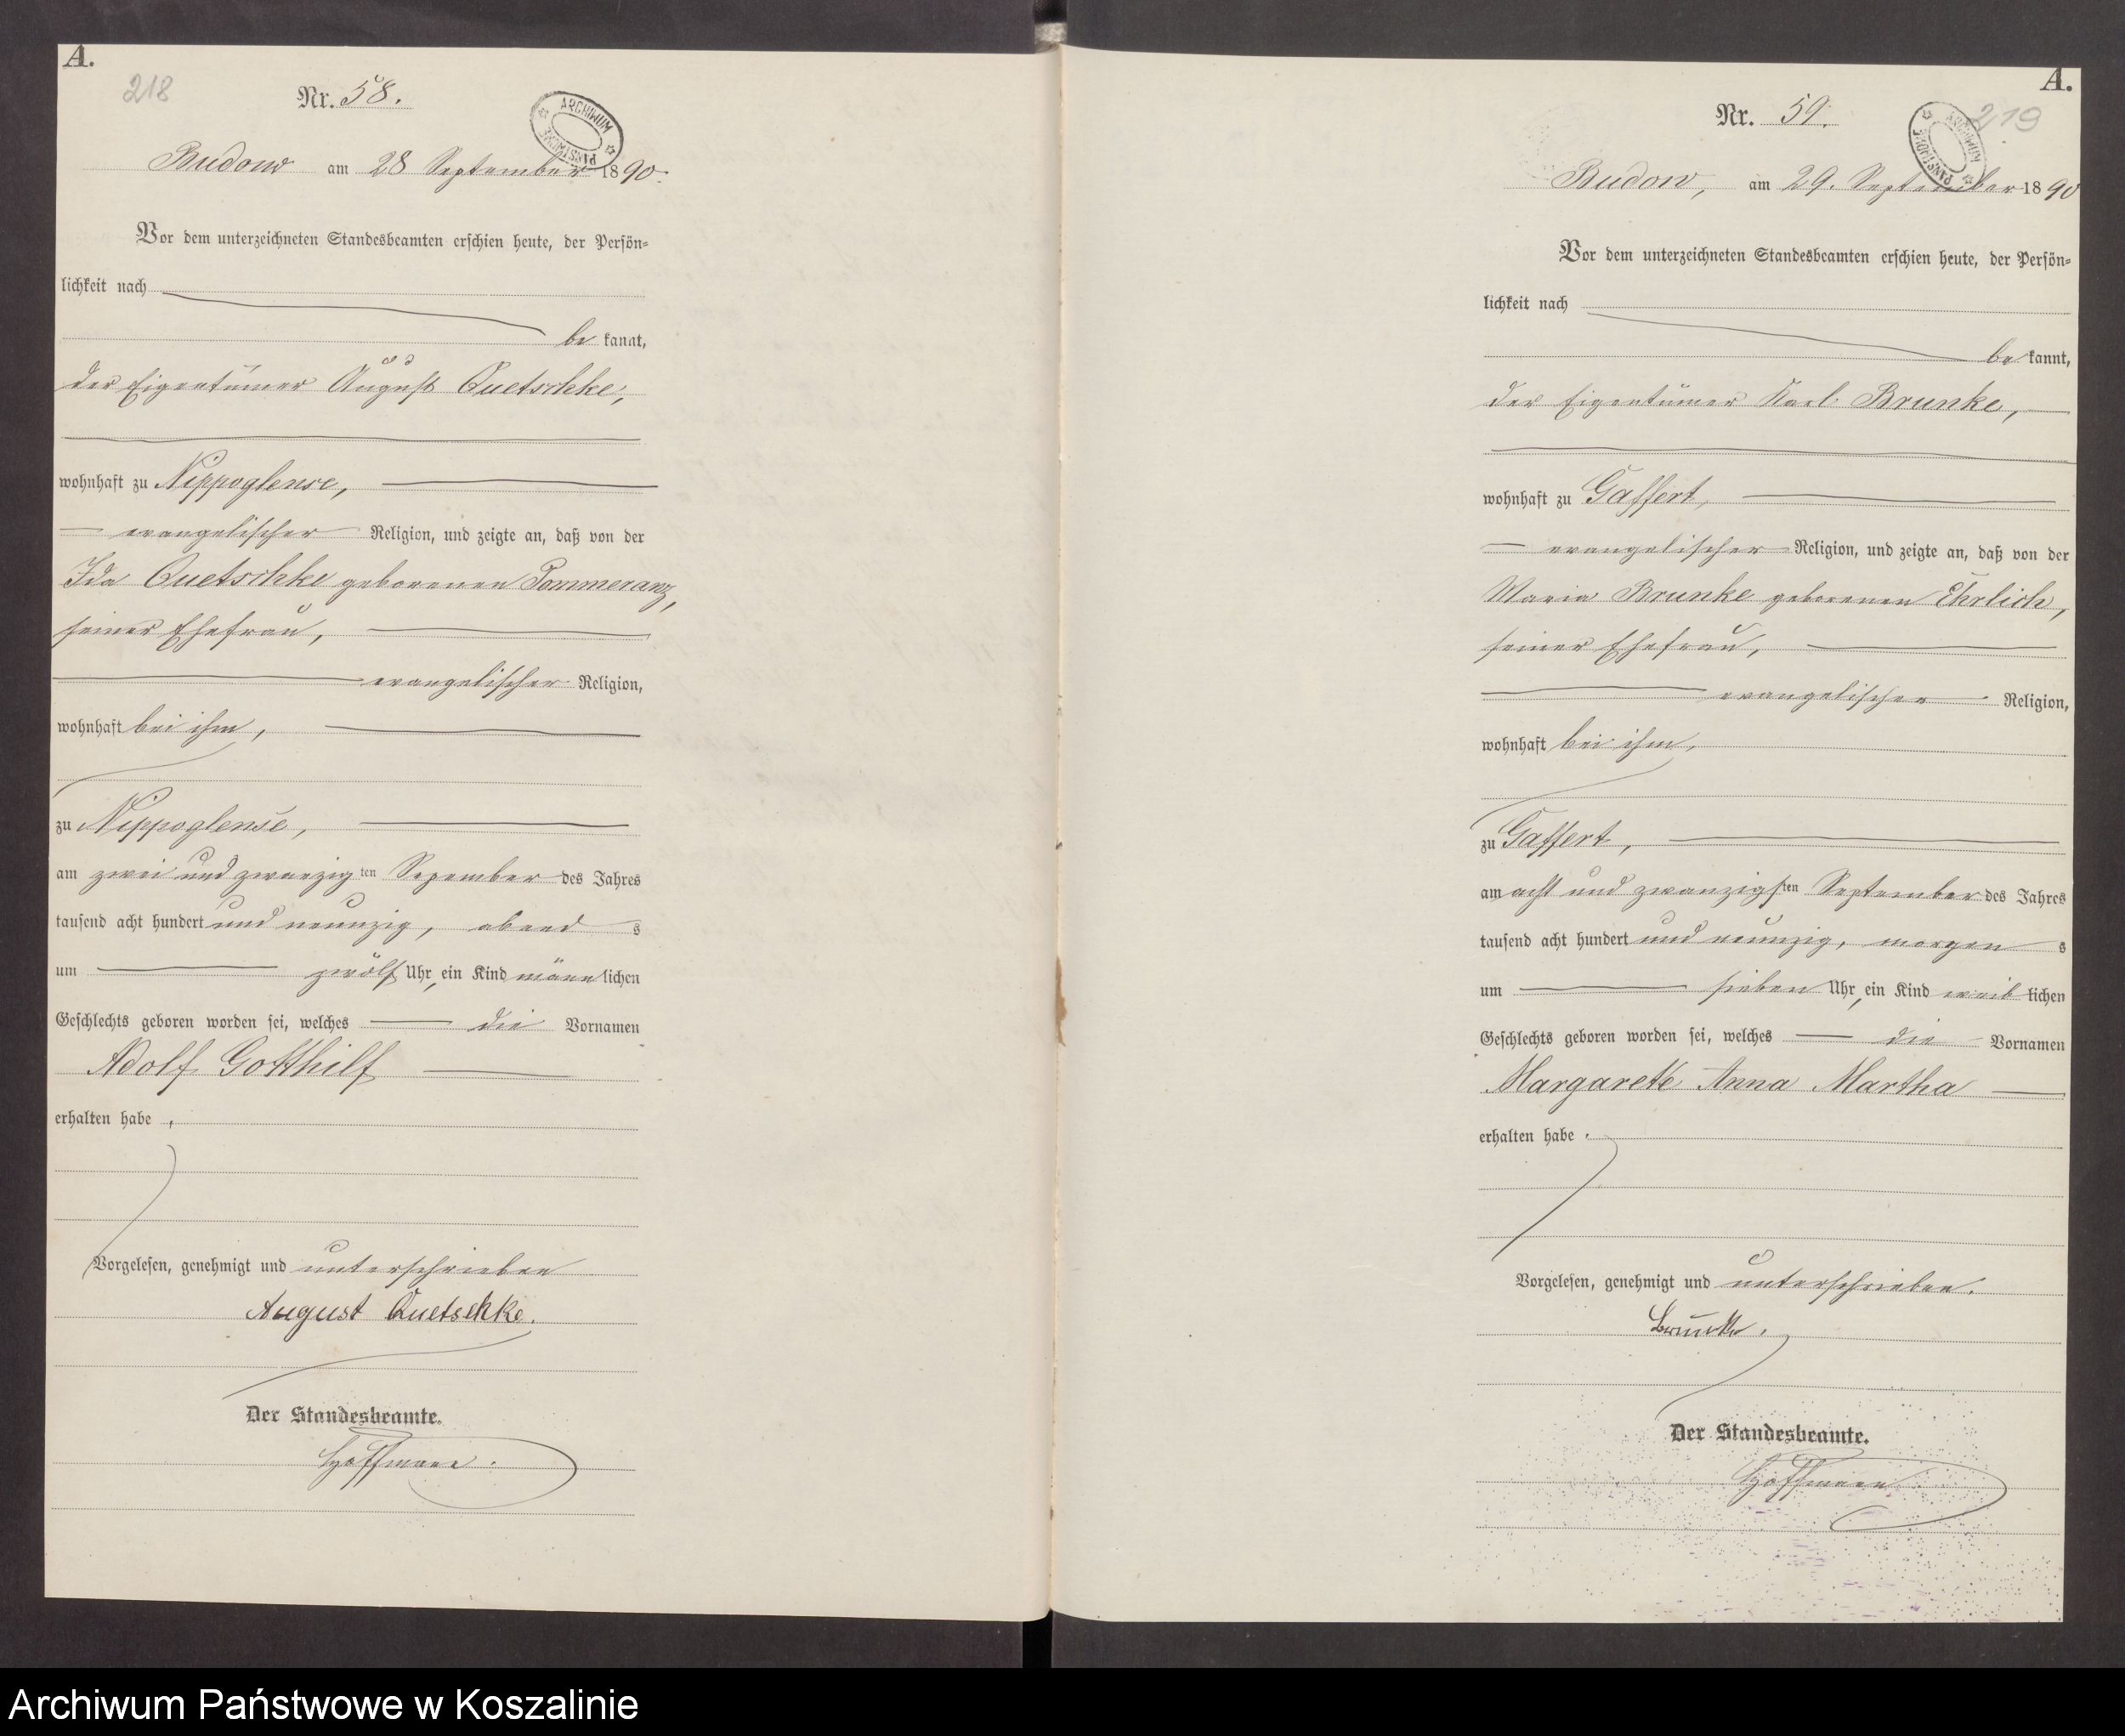 A.
218
Nr. 58.
ARCHIWUM PAŃSTWOWE
Budow am 28 September 1890.
Vor dem unterzeichneten Standesbeamten erschien heute, der Persön=
lichkeit nach
be kannt,
der Eigentümer August Quetschke,
wohnhaft zu Nippoglense,
evangelischer Religion, und zeigte an, daß von der
Ida Quetschke geborenen Pommeranz,
seiner Ehefrau,
evangelischer Religion,
wohnhaft bei ihm,
zu Nippoglense,
am zwei und zwanzig ten Sepember des Jahres
tausend acht hundert und neunzig, abend s
um zwölf Uhr, ein Kind männ lichen
Geschlechts geboren worden sei, welches die Vornamen
Adolf Gotthilf
erhalten habe,
Vorgelesen, genehmigt und unterschrieben
August Quetschke.
Der Standesbeamte.
Hoffmann.
A.
219
Nr. 59.
ARCHIWUM PAŃSTWOWE
Budow, am 29. September 1890
Vor dem unterzeichneten Standesbeamten erschien heute, der Persön=
lichkeit nach
be kannt,
der Eigentümer Karl Brunke,
wohnhaft zu Gaffert,
evangelischer Religion, und zeigte an, daß von der
Maria Brunke geborenen Ehrlich,
seiner Ehefrau,
evangelischer Religion,
wohnhaft bei ihm,
zu Gaffert,
am acht und zwanzigsten September des Jahres
tausend acht hundert und neunzig, morgen s
um sieben Uhr, ein Kind weib lichen
Geschlechts geboren worden sei, welches die Vornamen
Margarete Anna Martha
erhalten habe.
Vorgelesen, genehmigt und unterschrieben.
Brunke.
Der Standesbeamte.
Hoffmann
Archiwum Państwowe w Koszalinie